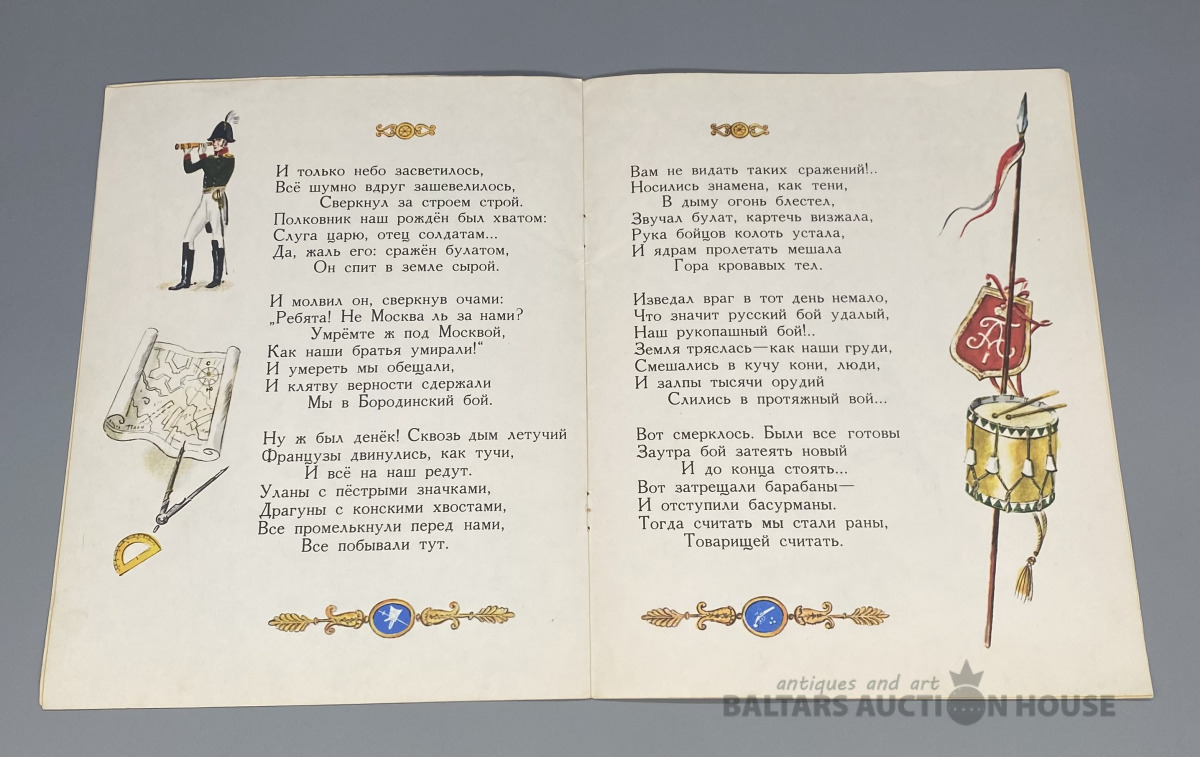 И только небо засветилось,
Всё шумно вдруг зашевелилось,
Сверкнул за строем строй.
Полковник наш рождён был хватом:
Слуга царю, отец солдатам...
Да, жаль его: сражён булатом,
Он спит в земле сырой.
И молвил он, сверкнув очами:
„Ребята! Не Москва ль за нами?
Умрёмте ж под Москвой,
Как наши братья умирали!“
И умереть мы обещали,
И клятву верности сдержали
Мы в Бородинский бой.
Ну ж был денёк! Сквозь дым летучий
Французы двинулись, как тучи,
И всё на наш редут.
Уланы с пёстрыми значками,
Драгуны с конскими хвостами,
Все промелькнули перед нами,
Все побывали тут.
Вам не видать таких сражений!..
Носились знамена, как тени,
В дыму огонь блестел,
Звучал булат, картечь визжала,
Рука бойцов колоть устала,
И ядрам пролетать мешала
Гора кровавых тел.
Изведал враг в тот день немало,
Что значит русский бой удалый,
Наш рукопашный бой!..
Земля тряслась—как наши груди,
Смешались в кучу кони, люди,
И залпы тысячи орудий
Слились в протяжный вой...
Вот смерклось. Были все готовы
Заутра бой затеять новый
И до конца стоять...
Вот затрещали барабаны—
И отступили басурманы.
Тогда считать мы стали раны,
Товарищей считать.
antiques and art
BALTARS AUCTION HOUSE